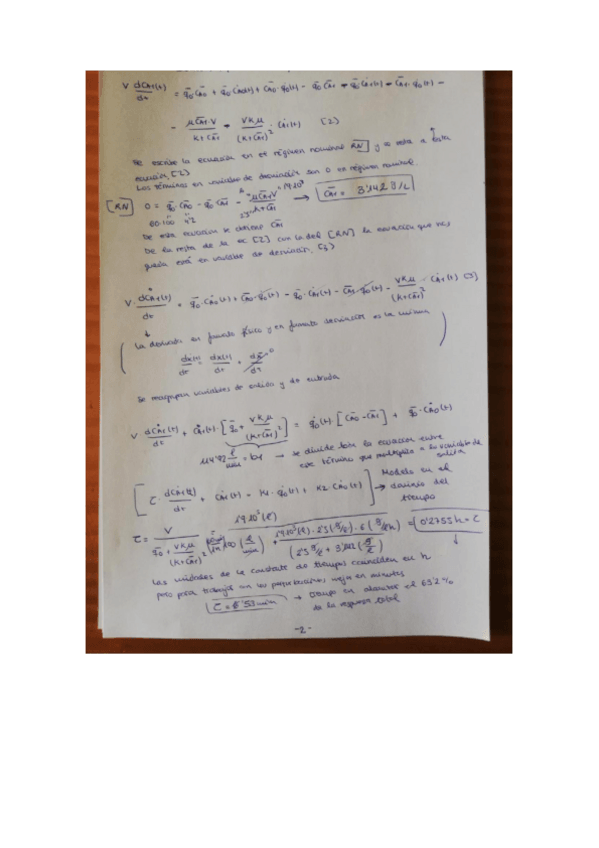 V dC_A1(t)/dt = q̄0·C̄A0 + q̄0·CA0(t) + C̄A0·q0(t) - q̄0·C̄A1 - q̄0·CA1(t) - C̄A1·q0(t) -
- μC̄A1·V/(K+C̄A1) - VKμ/(K+C̄A1)²·CA1(t) [2]
Se escribe la ecuación en el régimen nominal [RN] y se resta a esta
ecuación [2]
Los términos en variable de desviación son 0 en régimen nominal.
[RN] 0 = q̄0·C̄A0 - q̄0·C̄A1 - μC̄A1·V/(K+C̄A1) → C̄A1 = 3'142 g/L
60·100
De esta ecuación se obtiene C̄A1
De la resta de la ec [2] con la del [RN] la ecuación que nos
queda está en variable de desviación. (3)
V·dCA1(t)/dt = q̄0·CA0(t) + C̄A0·q0(t) - q̄0·CA1(t) - C̄A1·q0(t) - VKμ/(K+C̄A1)²·CA1(t) (3)
La derivada en formato físico y en formato desviación es la misma
dx(t)/dt = dx(t)/dt + dx̄/dt 0
Se reagrupan variables de salida y de entrada
V dCA1(t)/dt + CA1(t)·[q̄0 + VKμ/(K+C̄A1)²] = q0(t)·[C̄A0 - C̄A1] + q̄0·CA0(t)
→ se divide toda la ecuación entre
este término que multiplica a la variable de
salida
[τ·dCA1(t)/dt + CA1(t) = K1·q0(t) + K2·CA0(t)] → Modelo en el
dominio del
tiempo
τ = V/(q̄0 + VKμ/(K+C̄A1)²) = 0'2755 h = τ
Las unidades de la constante de tiempos coinciden en h
pero para trabajar con las perturbaciones mejor en minutos
→ tiempo en alcanzar el 63'2%
de la respuesta total
-2-